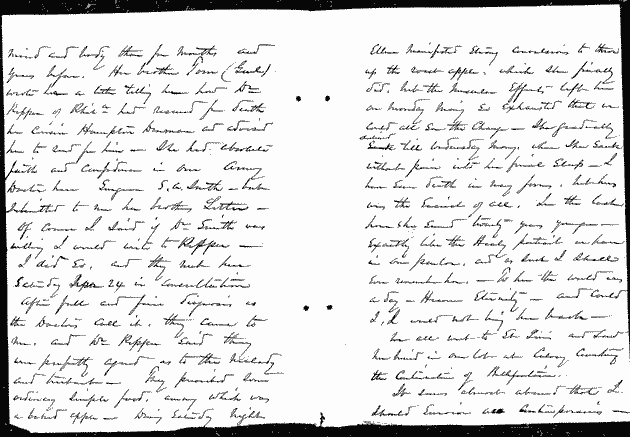 mind and body than for months and
years before. Her brother Tom (Genl.)
wrote him a letter telling him how Dr
Kippen of had rescued from death
her cousin Hampton and advised
her to send for him — She had absolute
faith and confidence in our Army
Doctor here Surgeon S. W. Smith — but
submitted to me her brothers Letter —
Of course I said if Dr Smith was
willing I would write to Kippen —
I did so, and they met here
Saturday 24 in consultation
After full and fair diagnosis as
the Doctors call it, they came to
me, and Dr Kippen said they
were perfectly agreed as to the malady
and treatment — They prescribed some
ordinary simple food, among which was
a baked apple — During Saturday night
Ellen manifested strong convulsions to throw
up the roast apple, which she finally
did, but the muscular efforts left her
on Monday so exhausted that we
could all see the change — She gradually
sank till Wednesday morng, when she sank
without pain into her final sleep — I
have seen death in many forms, but hers
was the easiest of all. In the casket
here she seemed twenty years younger —
Exactly like the Healy portrait we have
in our parlor, and as such I shall
ever remember her. — To her the world was
a day — Heaven Eternity — and could
I, I would not bring her back —
We all went to St Louis and laid
her in our lot at Calvary Cemetery
the
It seems almost absurd that I
should survive all contemporaries —